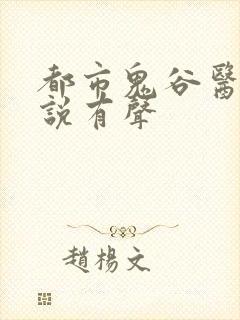 都市鬼谷醫
説有聲
趙楊文